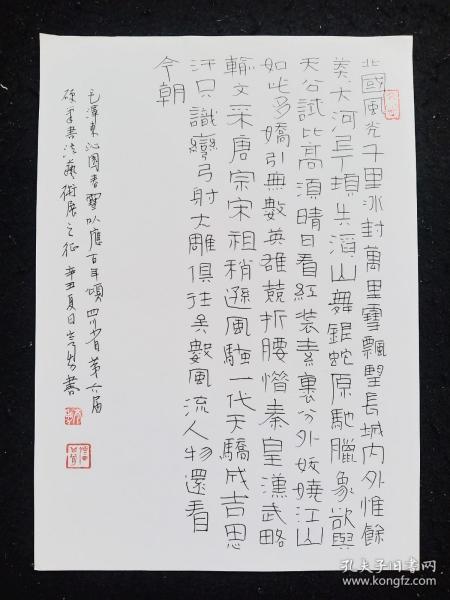 北國風光千里冰封萬里雪飄望長城内外惟餘
莽大河上下頓失滔山舞銀蛇原馳臘象欲與
天公試比高須晴日看紅裝素裹分外妖嬈江山
如此多嬌引無數英雄競折腰惜秦皇漢武略
輸文采唐宗宋祖稍遜風騷一代天驕成吉思
汗只識彎弓射大雕俱往矣數風流人物還看
今朝
毛澤東沁園春雪以應百年頌四川省第六届
硬筆書法藝術展之征 辛丑夏日書
孔夫子旧书网
www.kongfz.com